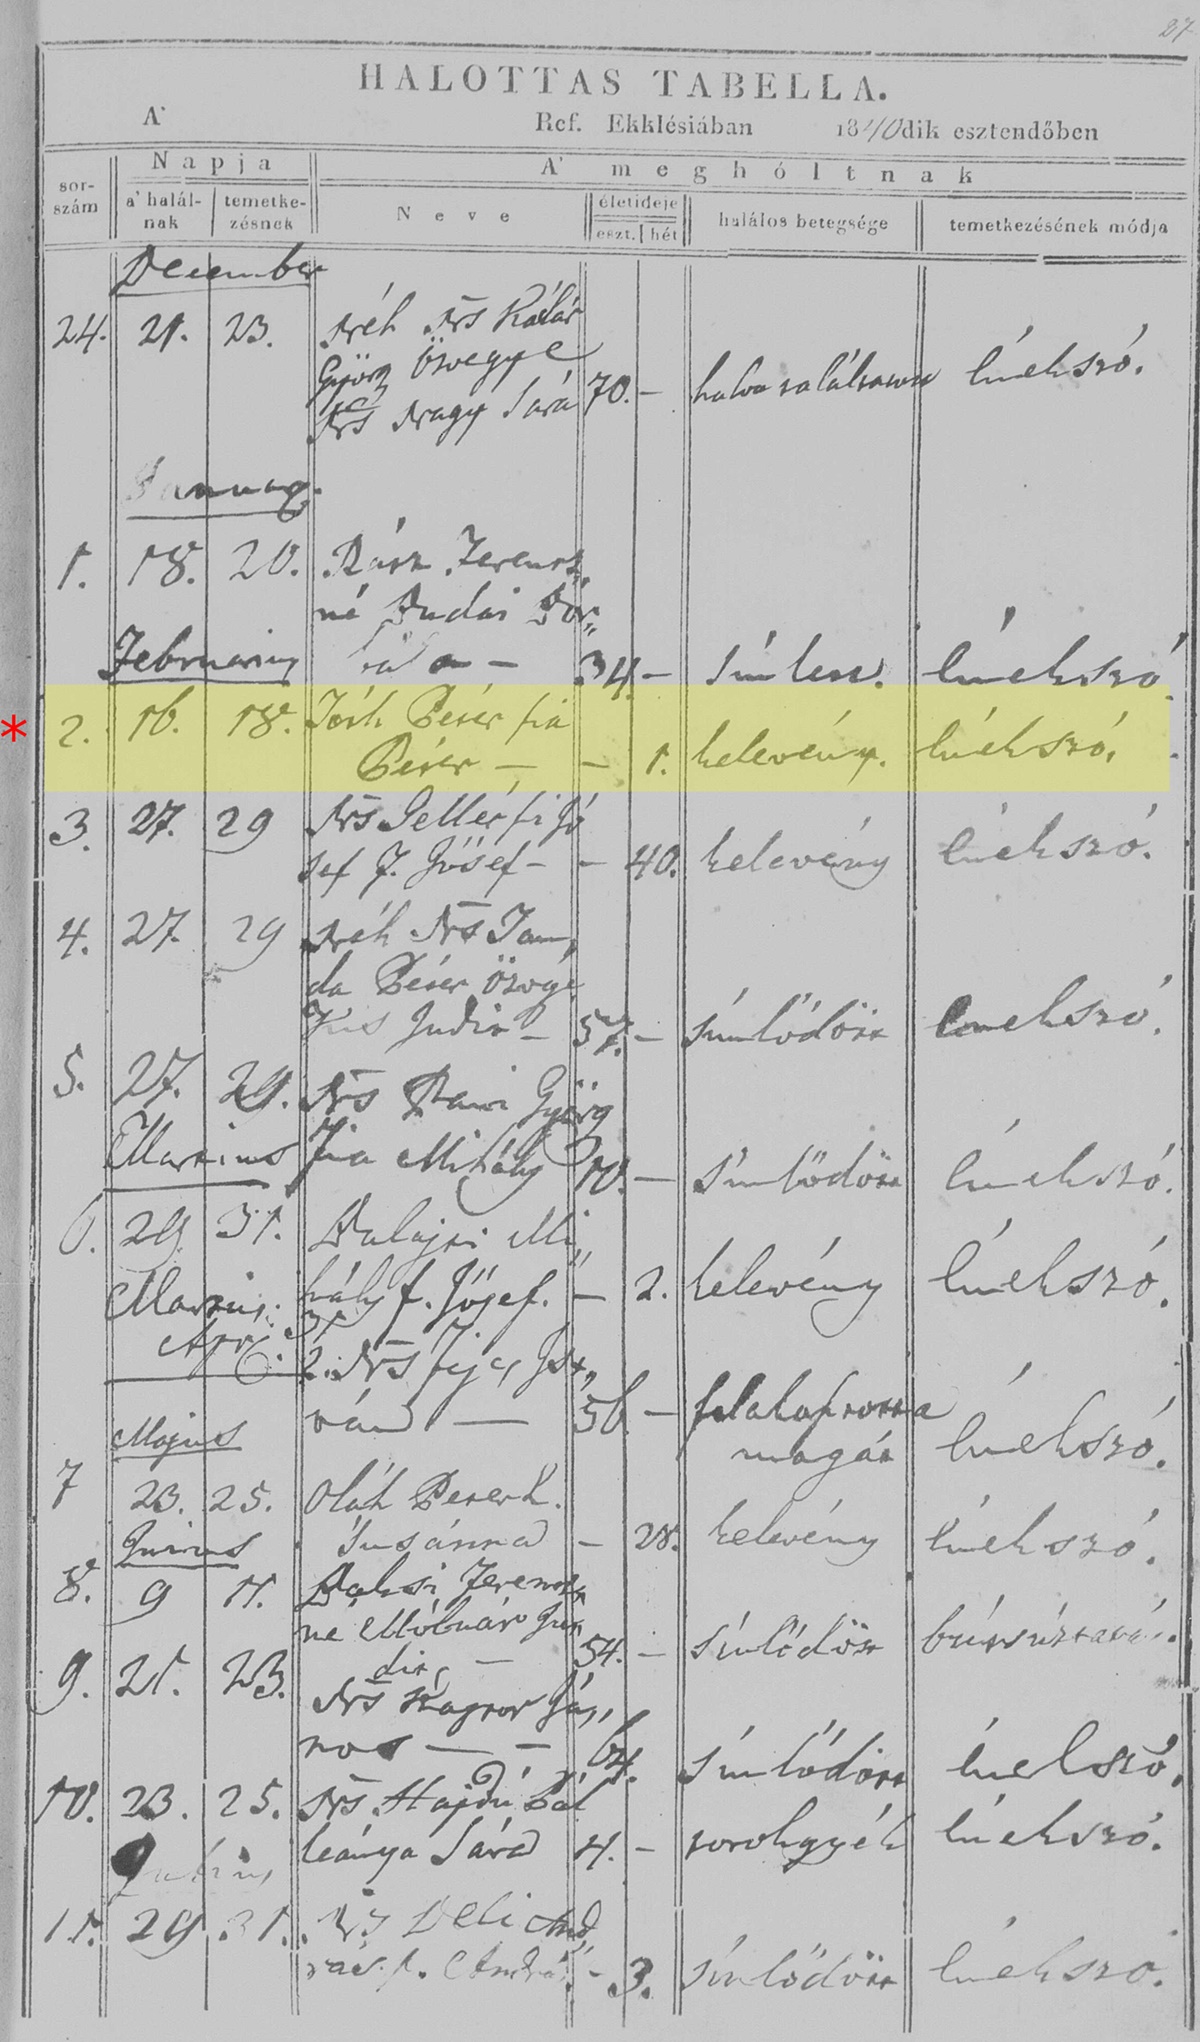 27
HALOTTAS TABELLA.
A' Ref. Ekklésiában 1840dik esztendőben
sor-szám
Napja
a' halál-nak
temetke-zésnek
A' meghóltnak
Neve
életideje
eszt. hét
halálos betegsége
temetkezésének módja
December
24. 21. 23. Néh Ns
György özvegye
Ns Nagy Sára 70. – halva énekszó.
Januar.
1. 18. 20. Rácz Ferencz
né Budai Bor„
Februarius – 34. – énekszó
* 2. 16. 18. Tóth Péter fia
Péter – – 1. kelevény. énekszó.
3. 27. 29 Ns Gellérfi Jó
sef f. Jósef – – 40. kelevény énekszó.
4. 27. 29 Néh Ns
da Péter özvegye
Kis Judit – 57. – sinlődött énekszó.
5. 27. 29. Ns György
Martius fia Mihály 10. – sinlődött énekszó.
6. 29. 31. Mi„
hály f. Jósef. – 2. kelevény énekszó.
Martius. 31
Apr. 2. Ns Ist„
ván — 56. – felakasztotta
Majus magát énekszó.
7 23. 25. Oláh Péter l.
Susánna – 28. kelevény énekszó.
Junius
8. 9 11. Ferencz„
né Molnár Ju„
dit – 54. – sinlődött
9. 21. 23. Ns Já„
nos — – 64. sinlődött énekszó.
10. 23. 25. Ns Hajdú Pál
leánya Sára 4. – torokgyék énekszó.
Julius
11. 29 31. Ns Deli And„
rás f. András – 3. sinlődött énekszó.